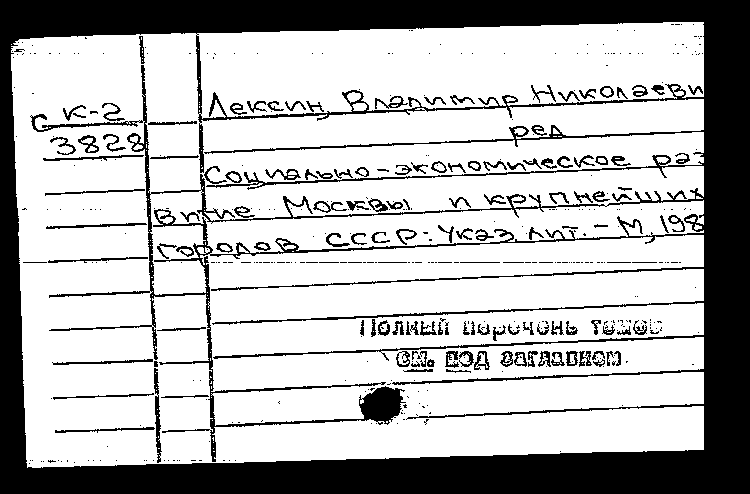 С К-2
3828
Лексин, Владимир Николаеви
ред
Социально-экономическое раз
витие Москвы и крупнейших
городов СССР: Указ. лит. - М., 198
Полный перечень томов
см. под заглавием.